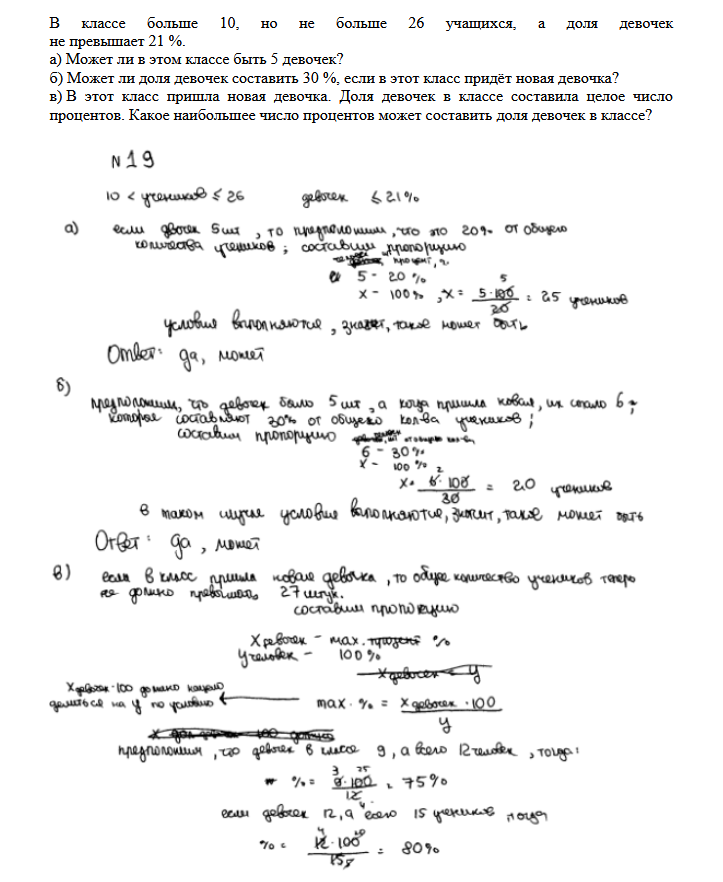 В классе больше 10, но не больше 26 учащихся, а доля девочек
не превышает 21 %.
а) Может ли в этом классе быть 5 девочек?
б) Может ли доля девочек составить 30 %, если в этот класс придёт новая девочка?
в) В этот класс пришла новая девочка. Доля девочек в классе составила целое число
процентов. Какое наибольшее число процентов может составить доля девочек в классе?
N19
10 < учеников ≤ 26 девочек ≤ 21%
а) если двочек 5 шт, то предположим, что это 20% от общего
количества учеников; составим пропорцию
процент, ч
5 - 20%
x - 100%, x = 5·100/20 = 25 учеников
условия выполняются, значит, такое может быть
Ответ: да, может
б)
предположим, что девочек было 5 шт, а когда пришла новая, их стало 6,
которые составляют 30% от общего кол-ва учеников;
составим пропорцию
6 - 30%
x - 100%
x = 6·100/30 = 20 учеников
в таком случае условия выполняются, значит, такое может быть
Ответ: да, может
в) если в класс пришла новая девочка, то общее количество учеников теперь
не должно превышать 27 штук.
составим пропорцию
X девочек - max. %
Y человек - 100%
X девочек·100 должно нацело
делиться на y по условию
max. % = X девочек·100/y
предположим, что девочек в классе 9, а всего 12 человек, тогда:
% = 9·100/12 = 75%
если девочек 12, а всего 15 учеников тогда
% = 12·100/15 = 80%